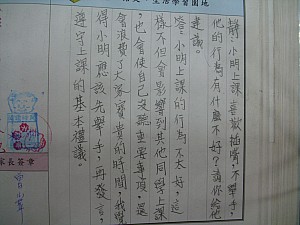 生活學習園地
題:小明上課喜歡插嘴,不舉手,
他的行為有什麼不好?請你給他
建議。
答:小明上課的行為不太好,這
樣不但會影響到其他同學上課
,也會使自己沒聽重要事項,還
會浪費了大家寶貴的時間,我覺
得小明應該先舉手,再發言,
遵守上課的基本禮議。
家長簽章